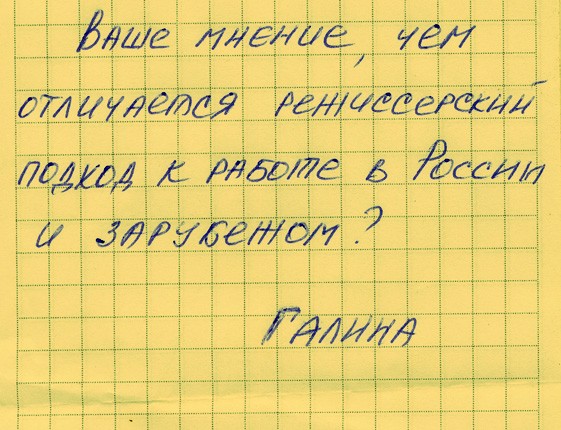 Ваше мнение, чем
отличается режиссерский
подход к работе в России
и зарубежом?
Галина